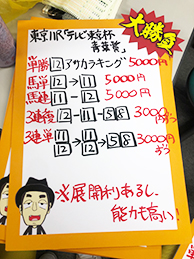 大勝負
東京11R「テレビ東京杯
青葉賞」
単勝 12 アサカラキング 5000円
馬単 12→11 5000円
馬連 11-12 5000円
3連複 11-12-5 8 3000円
3連単 11 12→11 12→5 8 3000円
ずつ
※展開利あるし、
能力も高い!